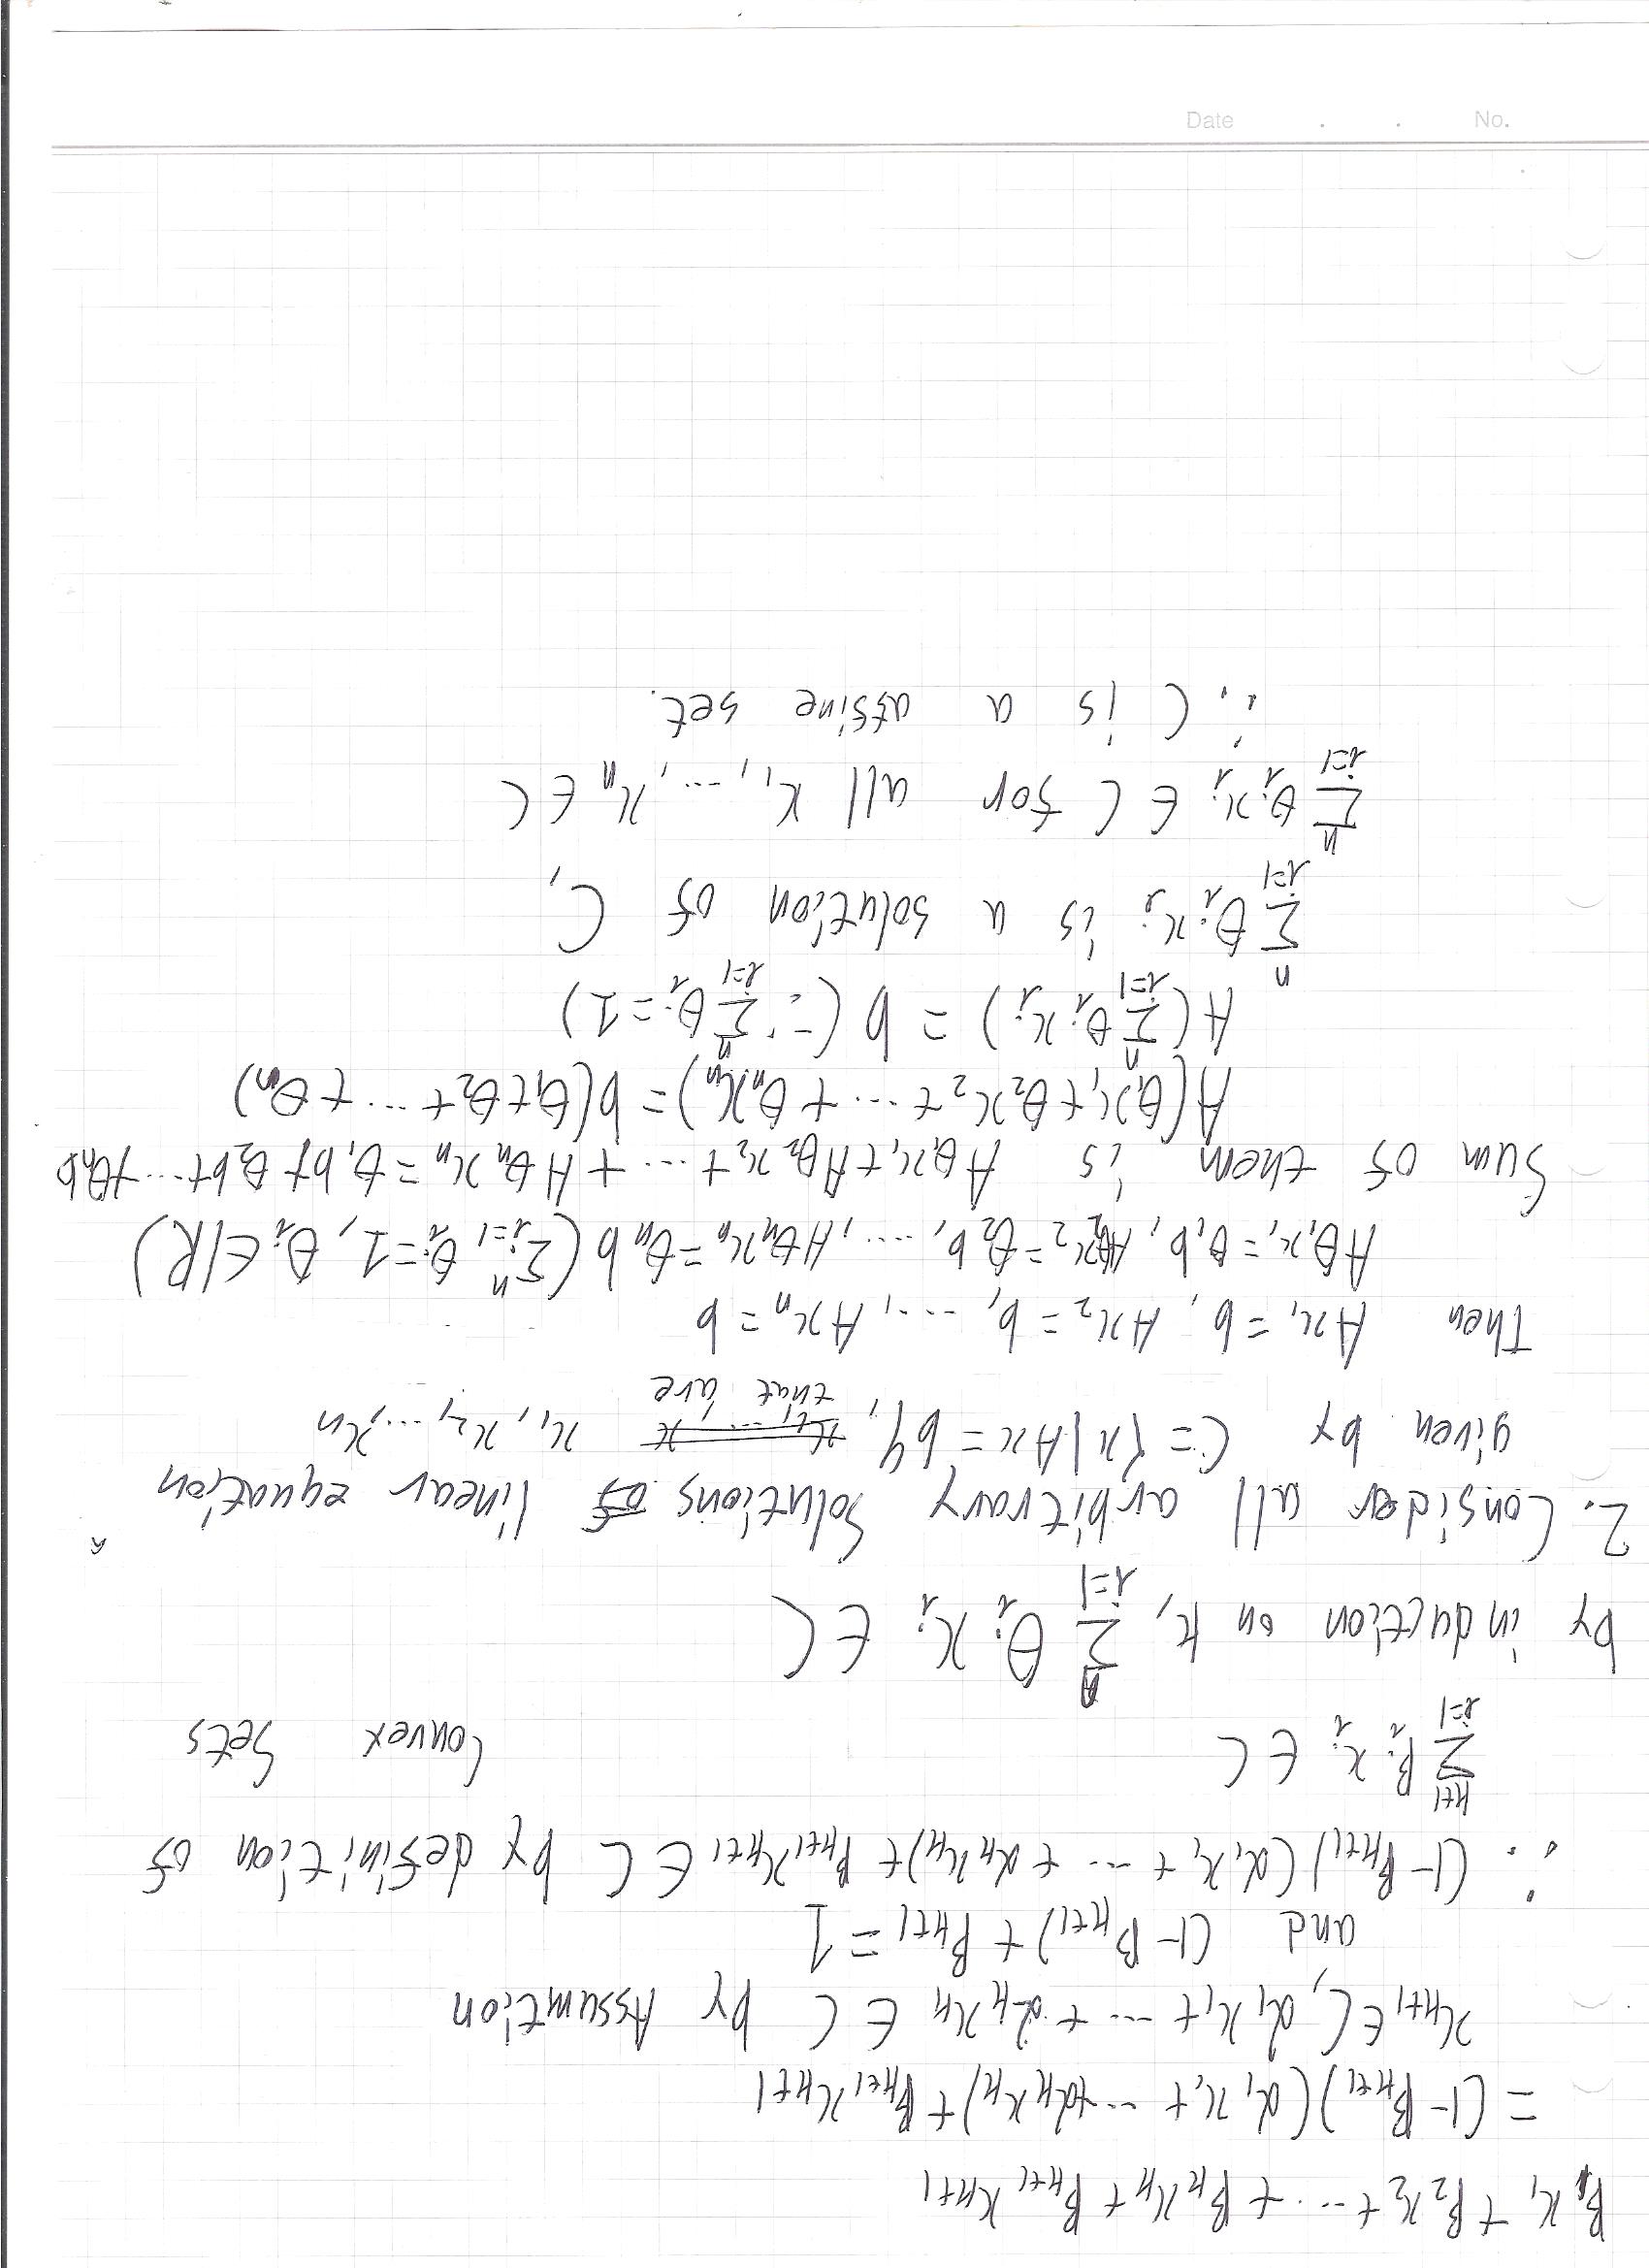 β₁x₁ + β₂x₂ + ··· + βₖxₖ + βₖ₊₁xₖ₊₁
= (1-βₖ₊₁)(α₁x₁ + ··· + αₖxₖ) + βₖ₊₁xₖ₊₁
xₖ₊₁ ∈ C, α₁x₁ + ··· + αₖxₖ ∈ C by Assumtion
and (1-βₖ₊₁) + βₖ₊₁ = 1
∴ (1-βₖ₊₁)(α₁x₁ + ··· + αₖxₖ) + βₖ₊₁xₖ₊₁ ∈ C by definition of
Convex Sets
∑ᵢ₌₁ᵏ⁺¹ βᵢxᵢ ∈ C
by induction on k, ∑ᵢ₌₁ⁿ θᵢxᵢ ∈ C
2. Consider all arbitrary Solutions of linear equation
given by C = {x | Ax = b}, that are x₁, x₂, ..., xₙ
Then Ax₁ = b, Ax₂ = b, ..., Axₙ = b
Aθ₁x₁ = θ₁b, Aθ₂x₂ = θ₂b, ...., Aθₙxₙ = θₙb (∑ᵢ₌₁ⁿ θᵢ = 1, θᵢ ∈ ℝ)
Sum of them is Aθ₁x₁ + Aθ₂x₂ + ··· + Aθₙxₙ = θ₁b + θ₂b + ··· + θₙb
A(θ₁x₁ + θ₂x₂ + ··· + θₙxₙ) = b(θ₁ + θ₂ + ··· + θₙ)
A(∑ᵢ₌₁ⁿ θᵢxᵢ) = b (∵ ∑ᵢ₌₁ⁿ θᵢ = 1)
∑ᵢ₌₁ⁿ θᵢxᵢ is a solution of C,
∑ᵢ₌₁ⁿ θᵢxᵢ ∈ C for all x₁, ..., xₙ ∈ C
∴ C is a affine set.
No. Date